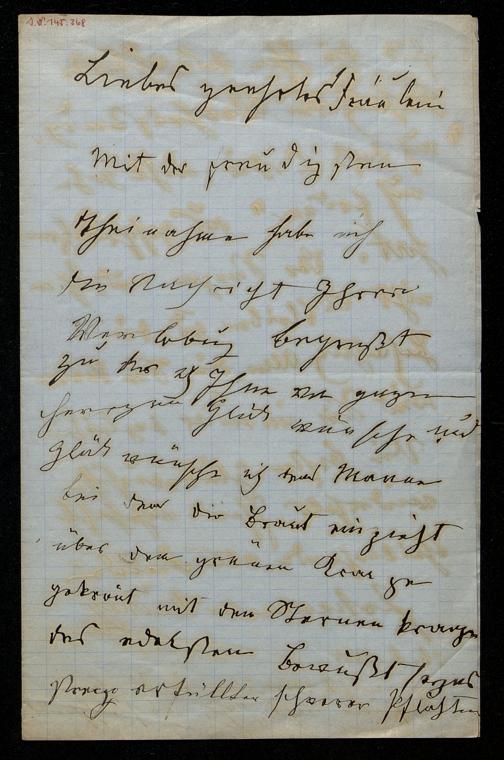 Liebes geehrtes Fräulein
Mit der freudigsten
Theinahme habe ich
die Nachricht Ihrer
Verlobug begrüßt
zu der ich Ihne von ganzen
herzen Glück wünsche und
Glück wünsche ich dem Manne
bei dem die Braut einzieht
über den grünen Kranze
gekrönt mit den Sternen kranze
des edelsten Bewußtseyns
streng erfüllter schwerer Pflichten